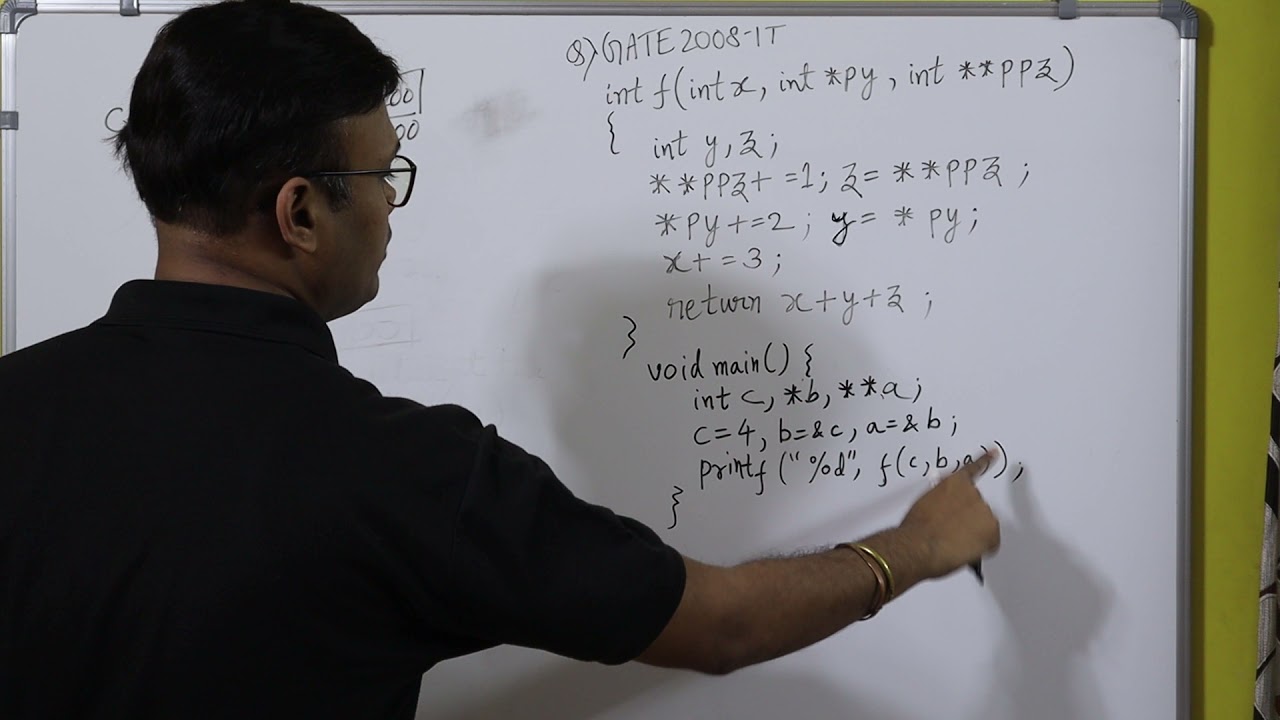 Q) GATE 2008-IT
int f(int x, int *py, int **ppz)
{
int y, z;
**ppz+ =1; z= **ppz ;
*py+=2; y= * py;
x+ =3;
return x+y+z ;
}
void main() {
int c, *b, **a;
c=4, b=&c, a=&b;
printf ("%d", f(c,b,a));
}